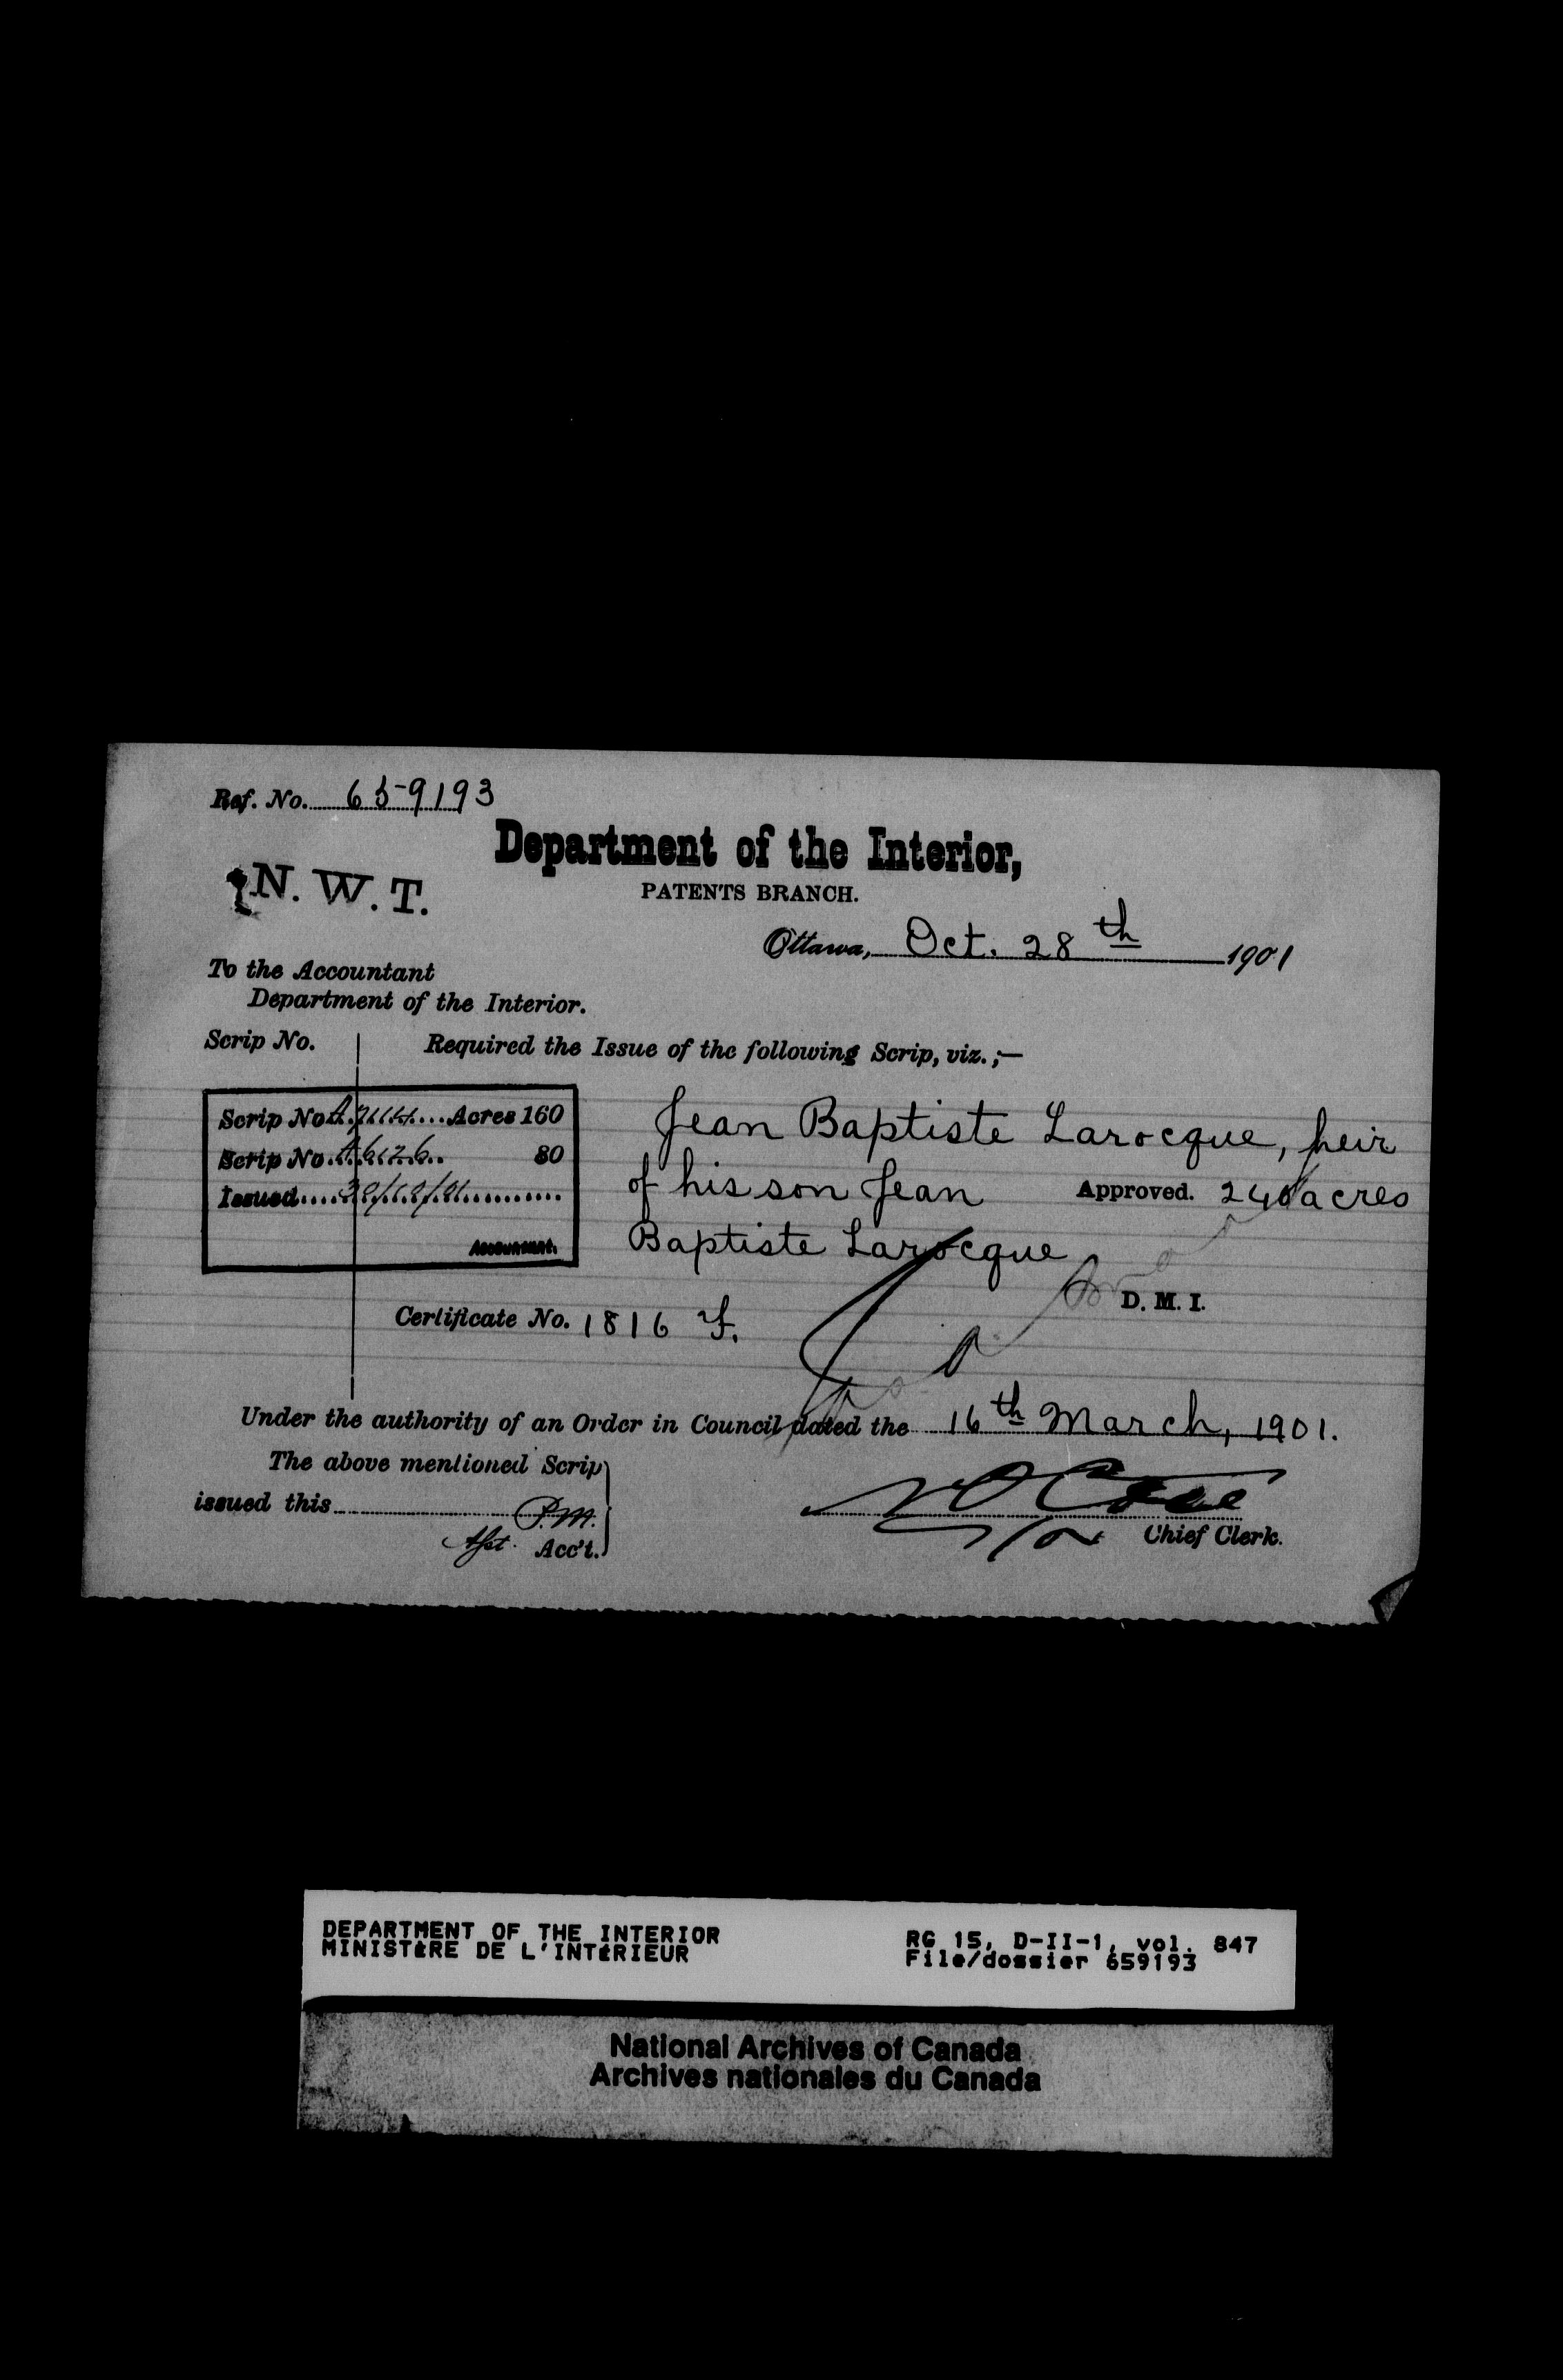 Ref. No. 659193
Department of the Interior,
N. W. T.
PATENTS BRANCH.
Ottawa, Oct. 28th 1901
To the Accountant
Department of the Interior.
Scrip No. Required the Issue of the following Scrip, viz.;—
Scrip No. Acres 160
Scrip No. A6126 80
Issued 30/10/01
Accountant.
Jean Baptiste Larocque, heir
of his son Jean Approved. 240 acres
Baptiste Larocque
D. M. I.
Certificate No. 1816 F.
Under the authority of an Order in Council dated the 16th March, 1901.
The above mentioned Scrip
issued this P.M.
Asst. Acc't.
Chief Clerk.
DEPARTMENT OF THE INTERIOR
MINISTÈRE DE L'INTÉRIEUR
RG 15, D-II-1, vol. 847
File/dossier 659193
National Archives of Canada
Archives nationales du Canada